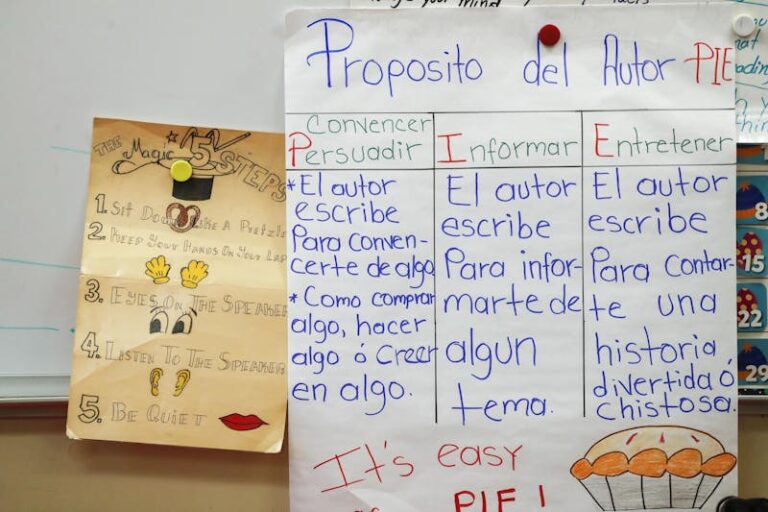 THE
Magic 5 STEPS
1. SIT DOWN LIKE A PRETZEL
2. KEEP YOUR HANDS ON YOUR LAP
3. EYES ON THE SPEAKER
4. LISTEN TO THE SPEAKER
5. BE QUIET
Proposito del Autor PIE
Convencer
Persuadir
*El autor
escribe
Para conven-
certe de algo
*Como comprar
algo, hacer
algo ó creer
en algo.
Informar
El autor
escribe
Para infor-
marte de
algun
tema.
Entretener
El autor
escribe
Para contar-
te una
historia
divertida ó
chistosa.
It's easy
as PIE!
8
15
22
29